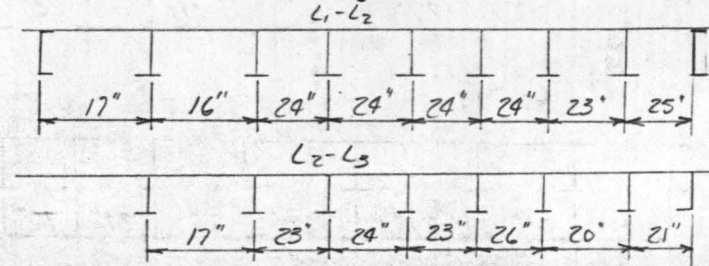 L₁-L₂
17" 16" 24" 24" 24" 24" 23' 25'
L₂-L₃
17" 23' 24" 23" 26" 20' 21"